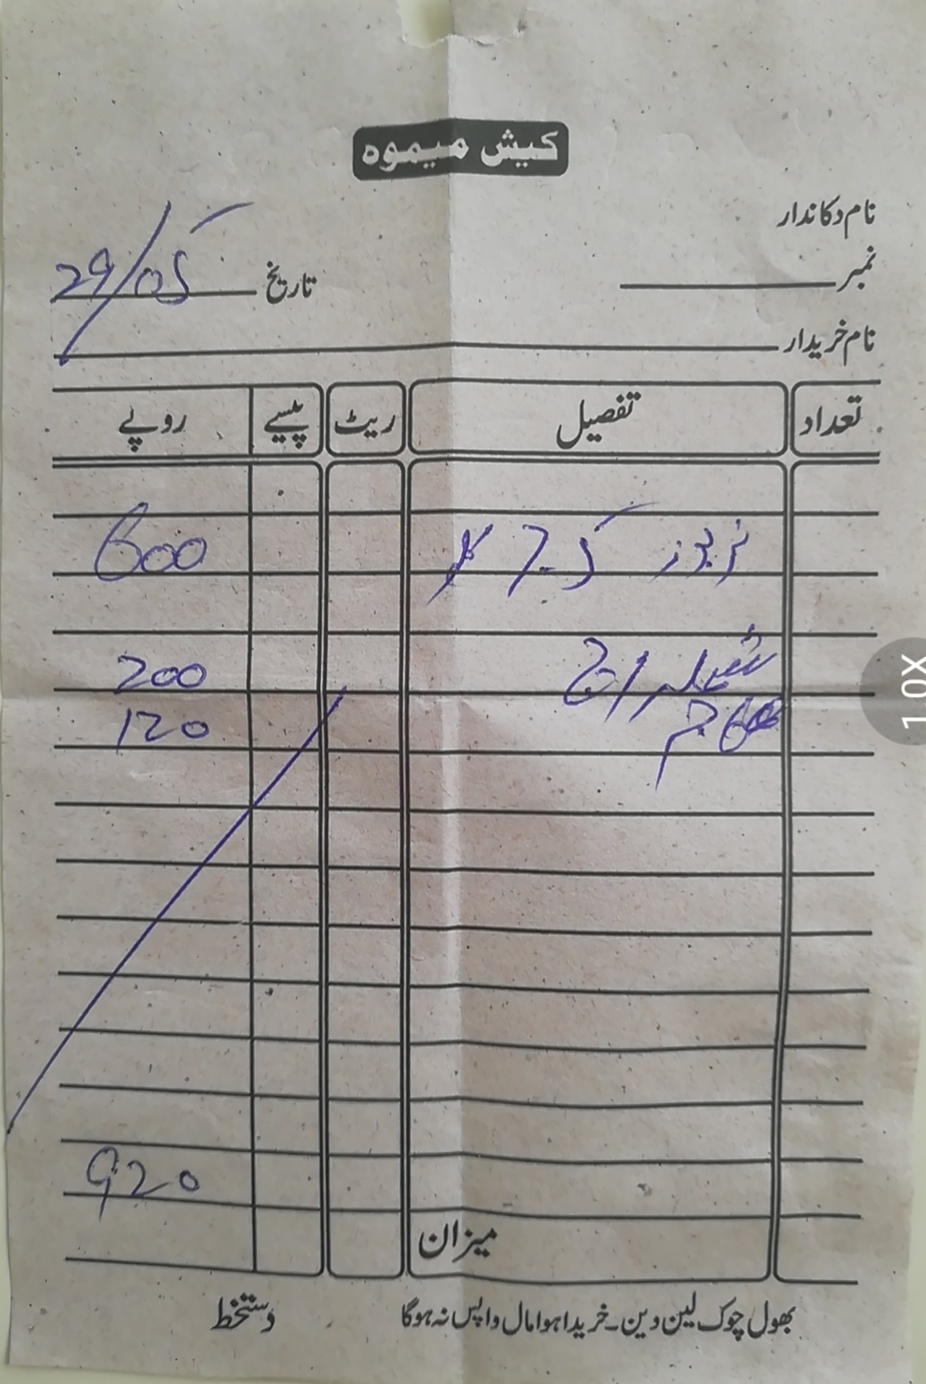 کیش میموہ
نام دکاندار
نمبر تاریخ 29/05
نام خریدار
تعداد تفصیل ریٹ پیسے روپے
تربوز 600
شملہ 200
120
920
میزان
بھول چوک لین دین۔ خریدا ہوا مال واپس نہ ہوگا دستخط
1.0X